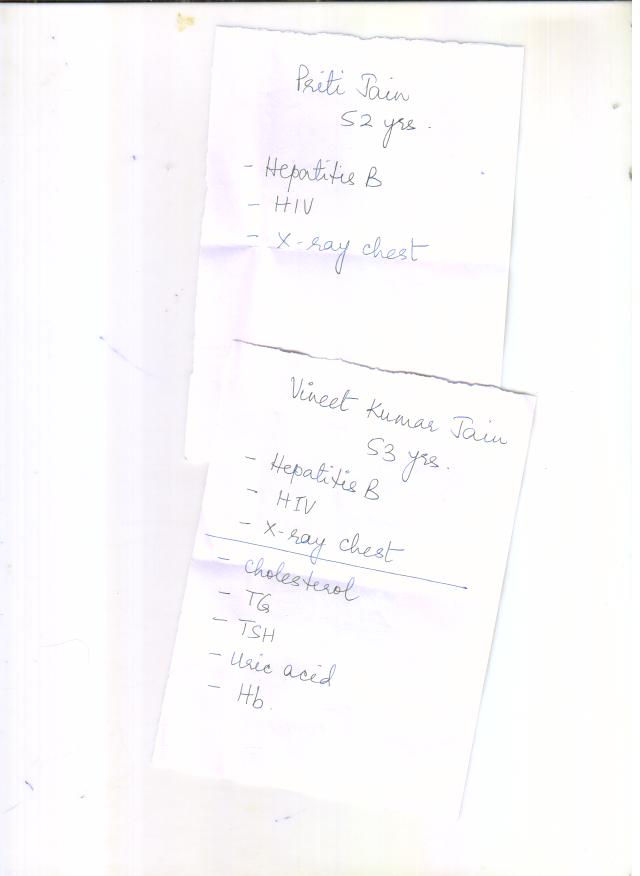 Priti Jain
52 yrs.
- Hepatitis B
- HIV
- X-ray chest
Vineet Kumar Jain
53 yrs.
- Hepatitis B
- HIV
- X-ray chest
- Cholesterol
- TG
- TSH
- Uric acid
- Hb.